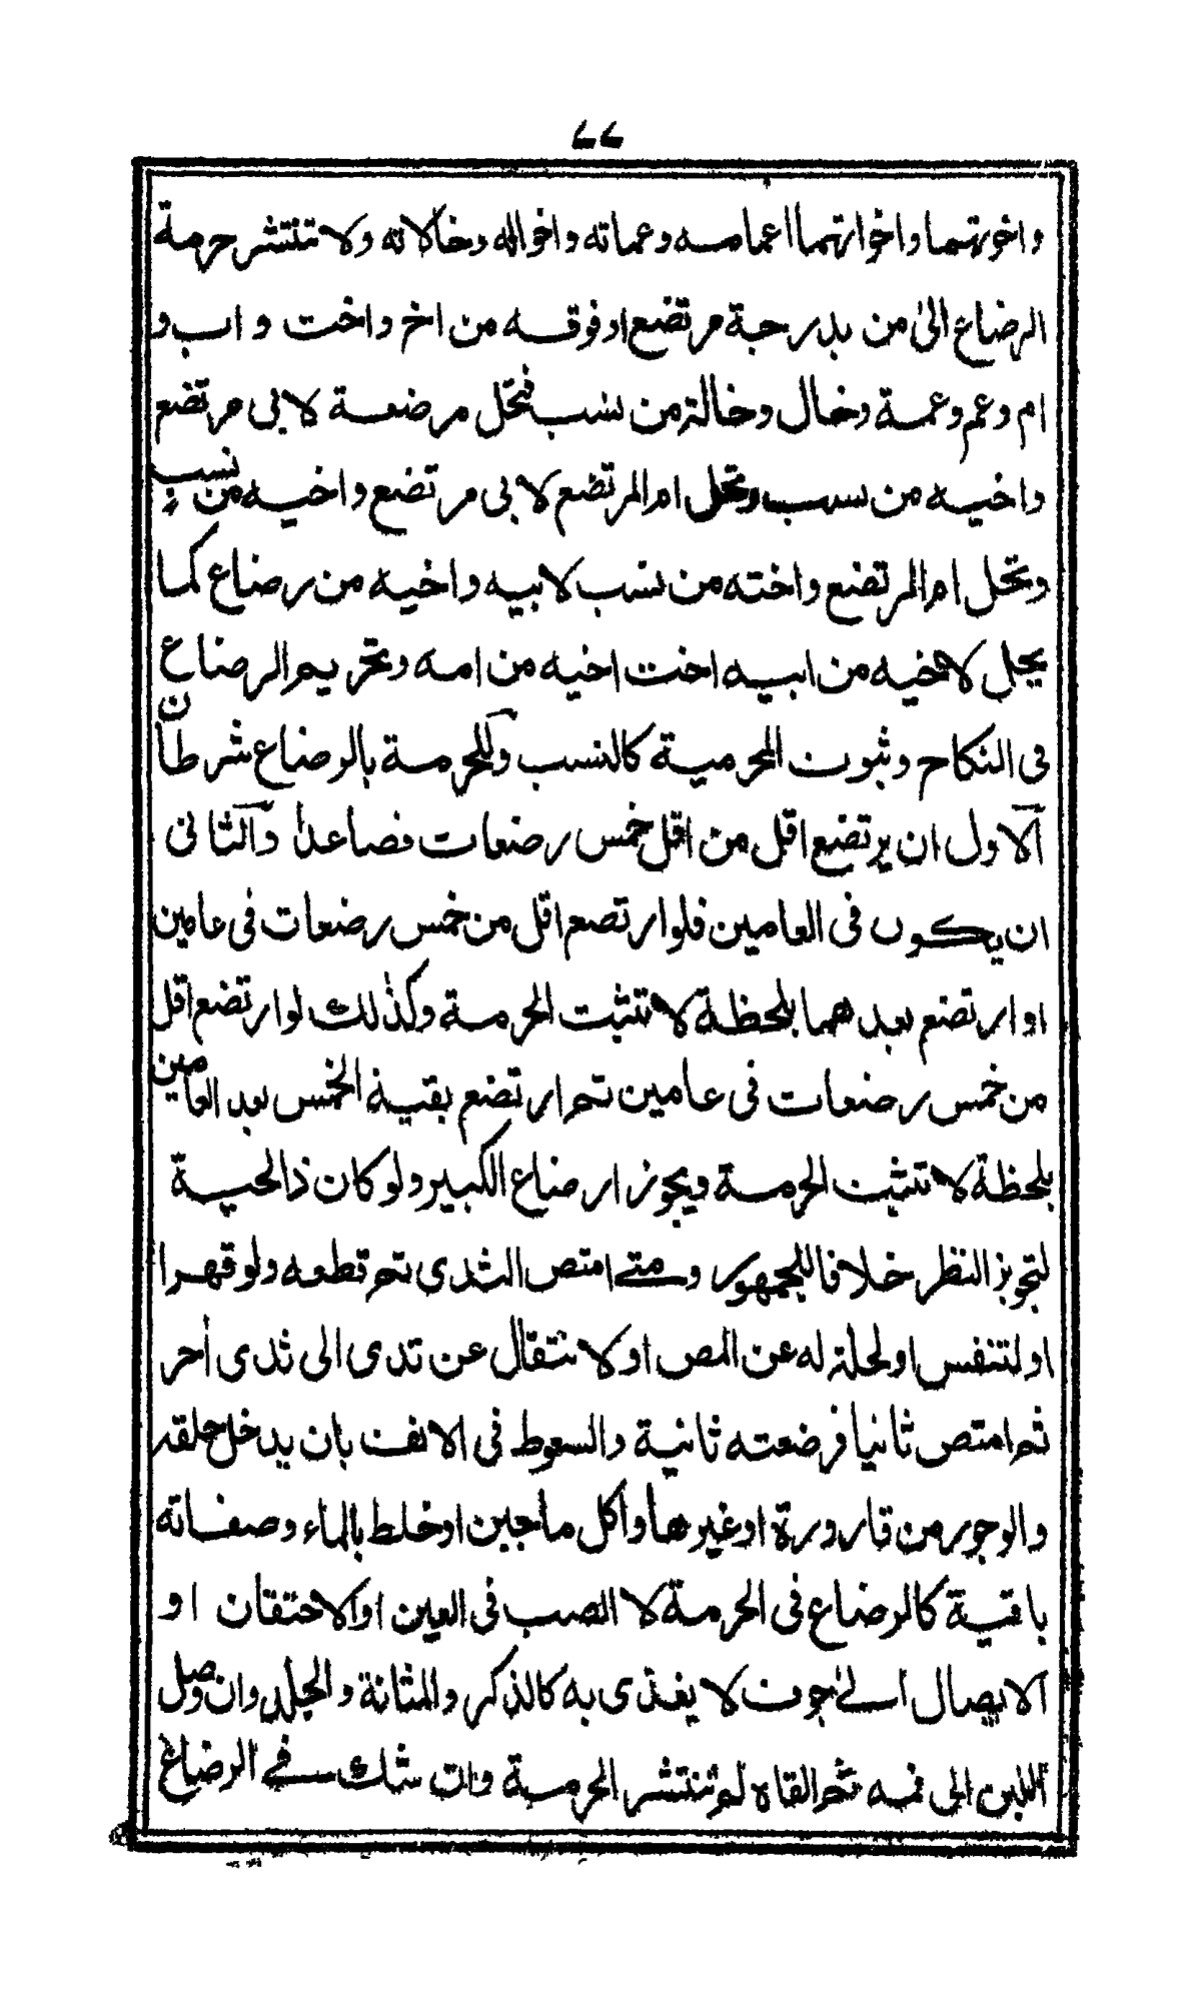 ٤٤
واخوتهما واخواتهما اعمامه وعماته واخواله وخالاته ولا تنتشر حرمة
الرضاع الى من بدرجة مرتضع او فوقه من اخ واخت و اب و
ام وعم وعمة وخال وخالة من نسب فتحل مرضعة لابى مرتضع
واخيه من نسب وتحل ام المرتضع لابى مرتضع واخيه من نسب
وتحل ام المرتضع واخته من نسب لابيه واخيه من رضاع كما
يحل لاخيه من ابيه اخت اخيه من امه وتحريم الرضاع
فى النكاح وثبوت المحرمية كالنسب وللحرمة بالرضاع شرطان
الاول ان يرتضع اقل من اقل خمس رضعات فصاعدا والثانى
ان يكون فى العامين فلو ارتضع اقل من خمس رضعات فى عامين
او ارتضع بعدهما بلحظة لا تثبت الحرمة وكذلك لو ارتضع اقل
من خمس رضعات فى عامين ثم ارتضع بقية الخمس بعد العامين
بلحظة لا تثبت الحرمة ويجوز ارضاع الكبير ولو كان ذا لحية
لتجويز النظر خلافا للجمهور ومتے امتص الثدى ثم قطعه ولو قهرا
او لتنفس او لحلة له عن المص او لانتقال عن ثدى الى ثدى أخر
ثم امتص ثانيا فرضعته ثانية والسعوط فى الانف بان يدخل حلقه
والوجور من قارورة او غيرها واكل ما جبن او خلط بالماء وصفاته
باقية كالرضاع فى الحرمة لا الصب فى العين او الاحتقان او
الايصال الے جوف لا يغذى به كالذكر والمثانة والجلد وان وصل
اللبن الى فمه ثم القاه لم تنتشر الحرمة وان شك فے الرضاع